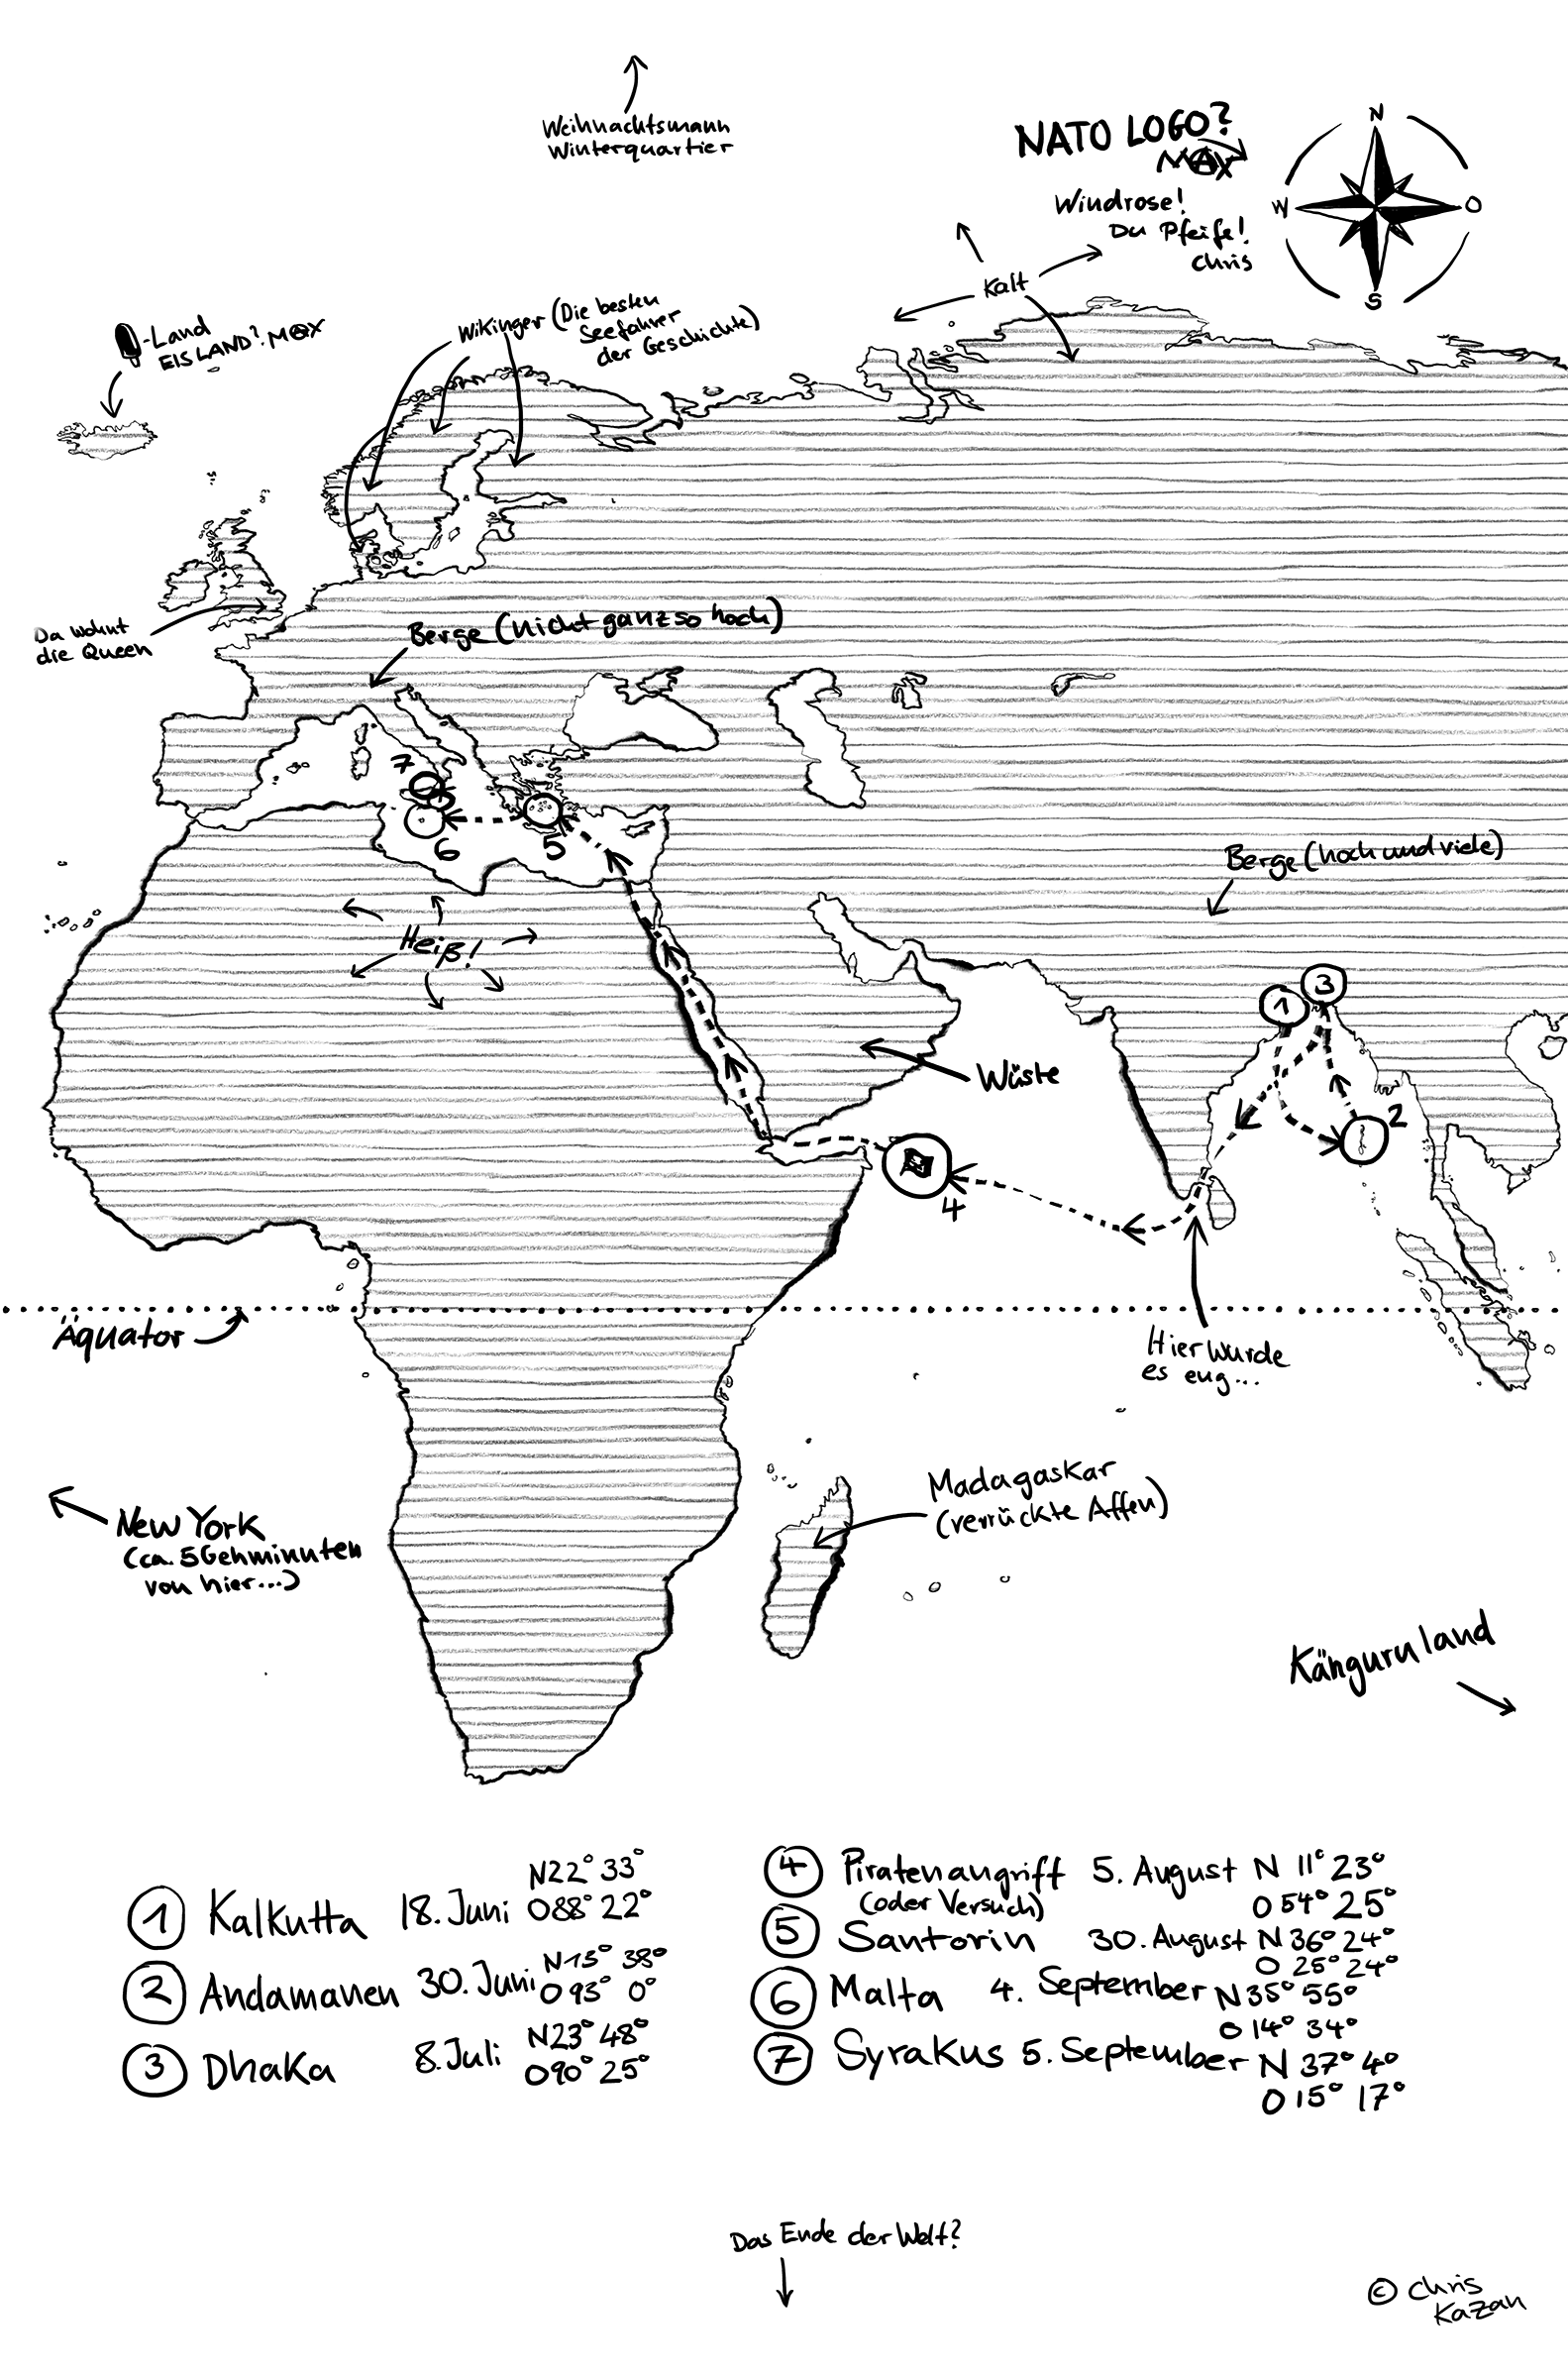 Weihnachtsmann
Winterquartier
NATO LOGO?
MAX
Windrose!
Du Pfeife!
Chris
N
W
O
S
Kalt
-Land
EISLAND? MAX
Wikinger (Die besten
Seefahrer
der Geschichte)
Da wohnt
die Queen
Berge (nicht ganz so hoch)
7
6
5
Berge (hoch und viele)
Heiß!
1
3
Wüste
2
4
Äquator
Hier wurde
es eng...
Madagaskar
(verrückte Affen)
New York
(ca. 5 Gehminnten
von hier...)
Känguruland
1 Kalkutta 18. Juni N22° 33°
O88° 22°
2 Andamanen 30. Juni N15° 38°
O 93° 0°
3 Dhaka 8. Juli N23° 48°
O90° 25°
4 Piratenangriff 5. August N 11° 23°
(oder Versuch) O 54° 25°
5 Santorin 30. August N 36° 24°
O 25° 24°
6 Malta 4. September N35° 55°
O 14° 34°
7 Syrakus 5. September N 37° 4°
O 15° 17°
Das Ende der Welt?
© Chris
Kazan